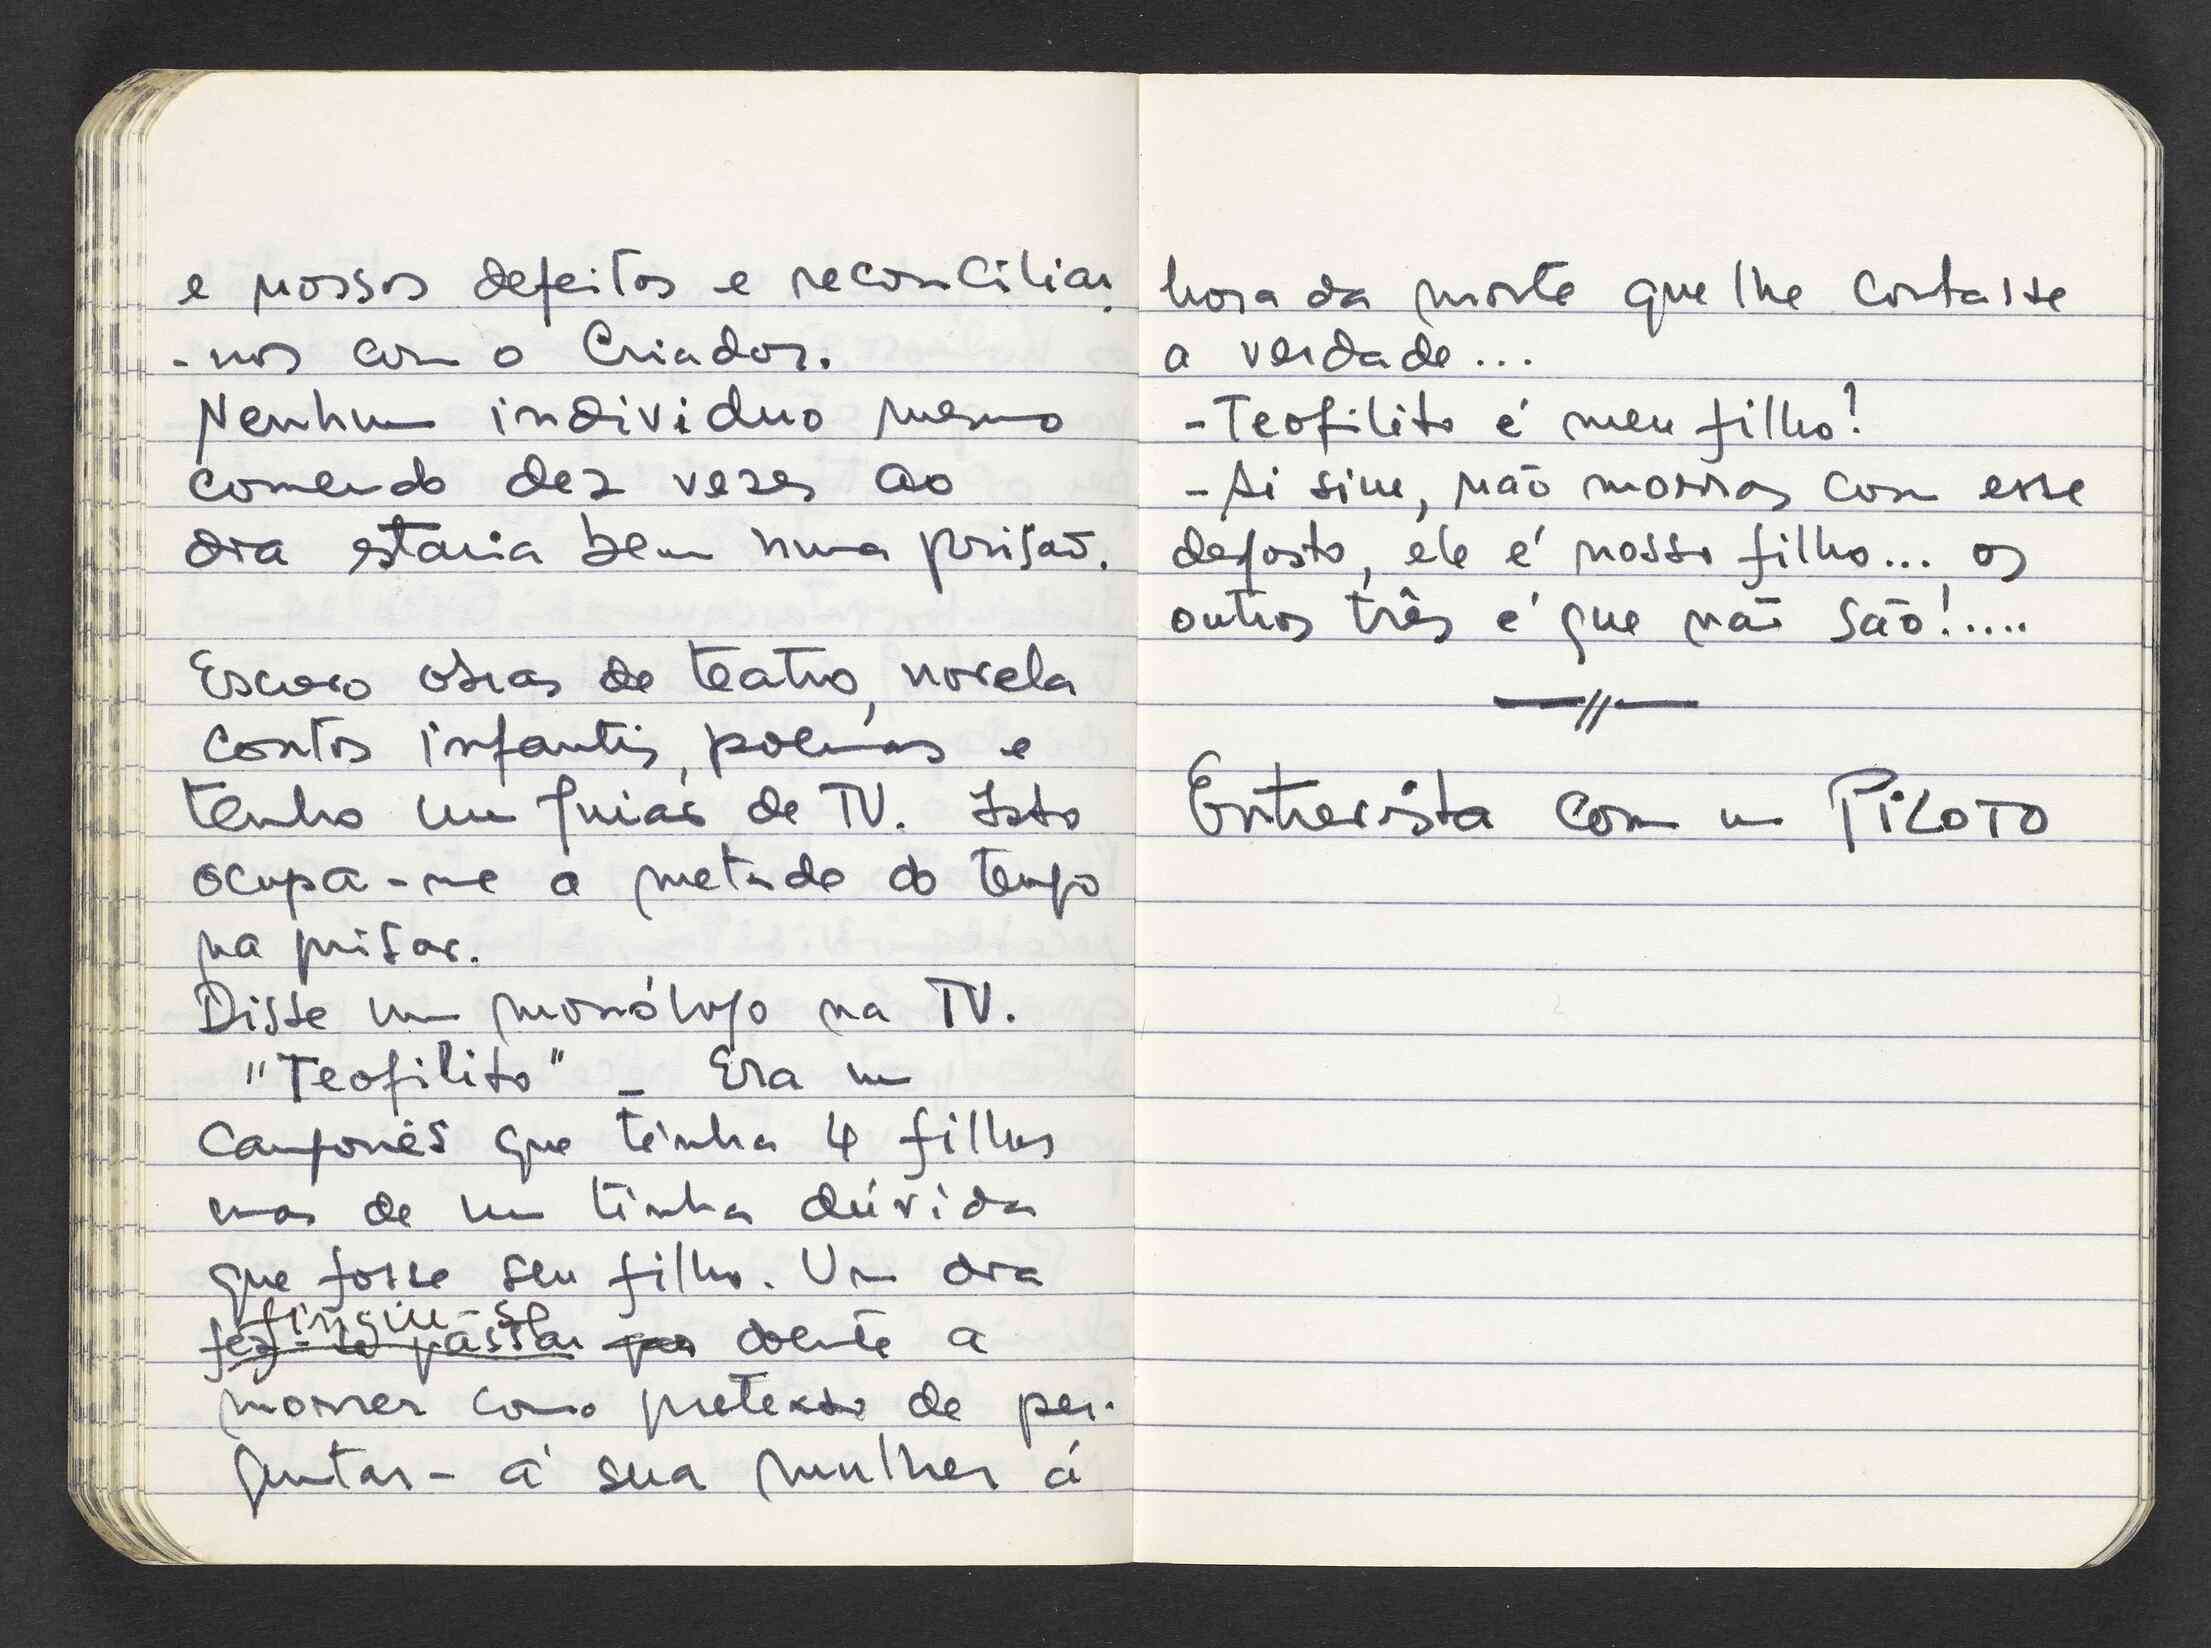 e nossos defeitos e reconciliar
-nos com o Criador.
Nenhum individuo mesmo
comendo dez vezes ao
dia estaria bem numa prisão.
Escrevo obras de teatro, novela
contos infantis, poemas e
tenho um de TV. Isto
ocupa-me a metade do tempo
na prisão.
Disse um monólogo na TV.
"Teofilito" - Era um
camponês que tinha 4 filhos
mas de um tinha dúvida
que fosse seu filho. Um dia
fingiu-se
fez-se passar por doente a
morrer como pretexto de per-
guntar- á sua mulher á
hora da morte que lhe contasse
a verdade...
-Teofilito é meu filho?
-Ai sim, não morras com esse
desgosto, ele é nosso filho... os
outros três é que não são!....
—//—
Entrevista com um PiLOTO